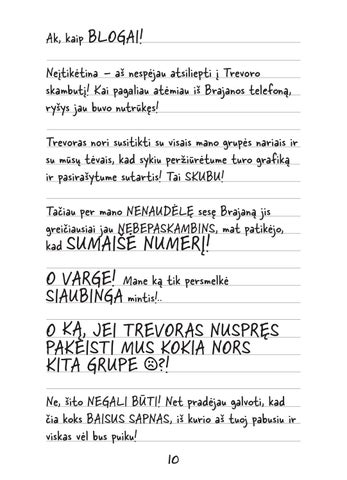 Ak, kaip BLOGAI!
Neįtikėtina – aš nespėjau atsiliepti į Trevoro
skambutį! Kai pagaliau atėmiau iš Brajanos telefoną,
ryšys jau buvo nutrūkęs!
Trevoras nori susitikti su visais mano grupės nariais ir
su mūsų tėvais, kad sykiu peržiūrėtume turo grafiką
ir pasirašytume sutartis! Tai SKUBU!
Tačiau per mano NENAUDĖLĘ sesę Brajaną jis
greičiausiai jau NEBEPASKAMBINS, mat patikėjo,
kad SUMAIŠĖ NUMERĮ!
O VARGE! Mane ką tik persmelkė
SIAUBINGA mintis!..
O KĄ, JEI TREVORAS NUSPRĘS
PAKEISTI MUS KOKIA NORS
KITA GRUPE ☹?!
Ne, šito NEGALI BŪTI! Net pradėjau galvoti, kad
čia koks BAISUS SAPNAS, iš kurio aš tuoj pabusiu ir
viskas vėl bus puiku!
10